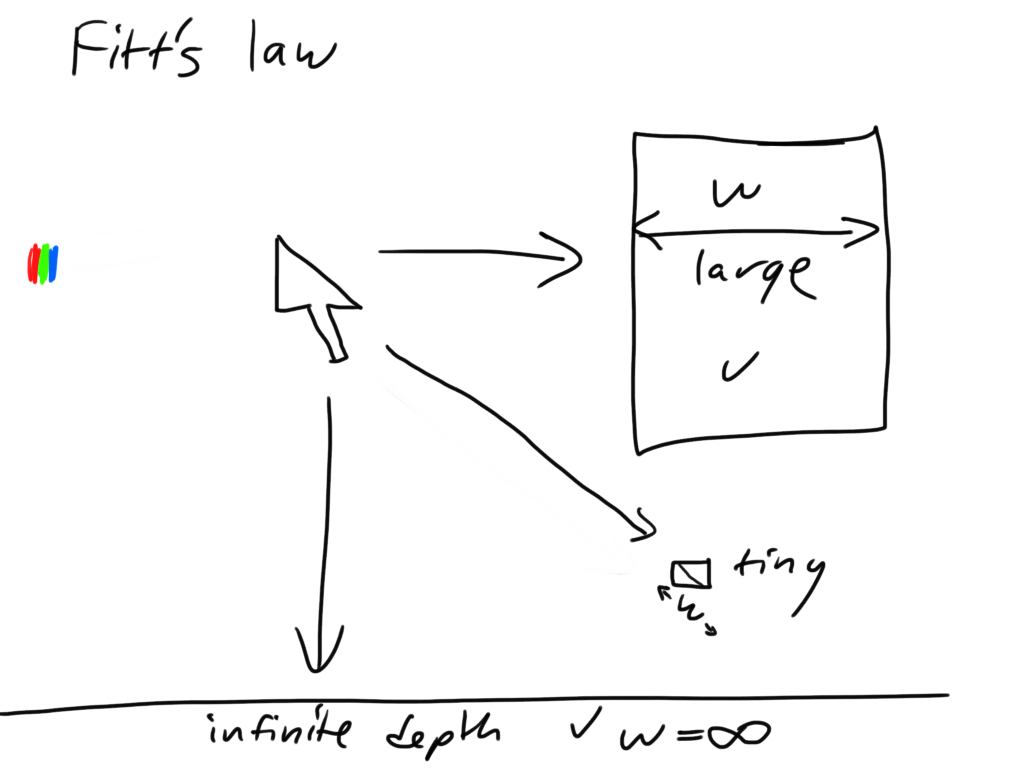 Fitt's law
w
large
✓
tiny
w
infinite depth ✓ w=∞